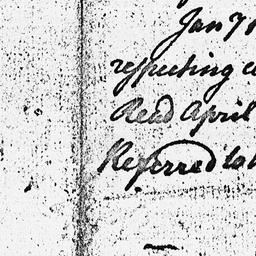 Jan 7
respecting
Read April
Referred to